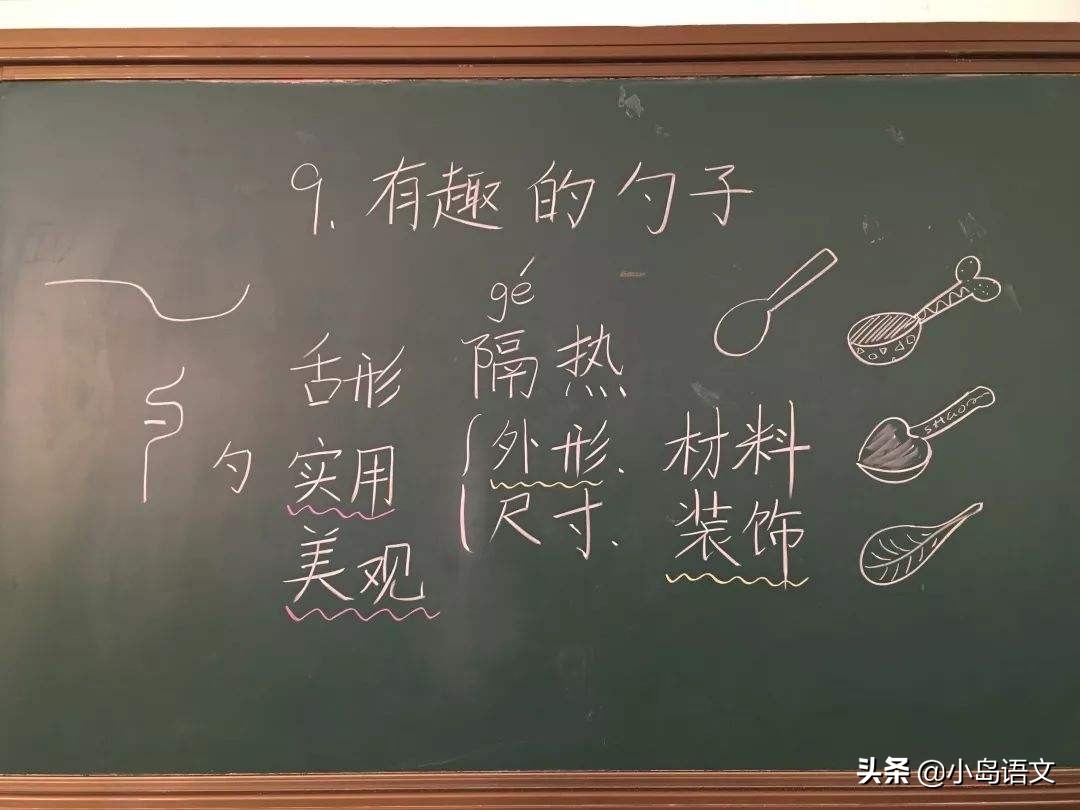 9.有趣的勺子
gé
舌形 隔热
勺 实用 外形、材料
美观 尺寸、装饰
头条 @小岛语文